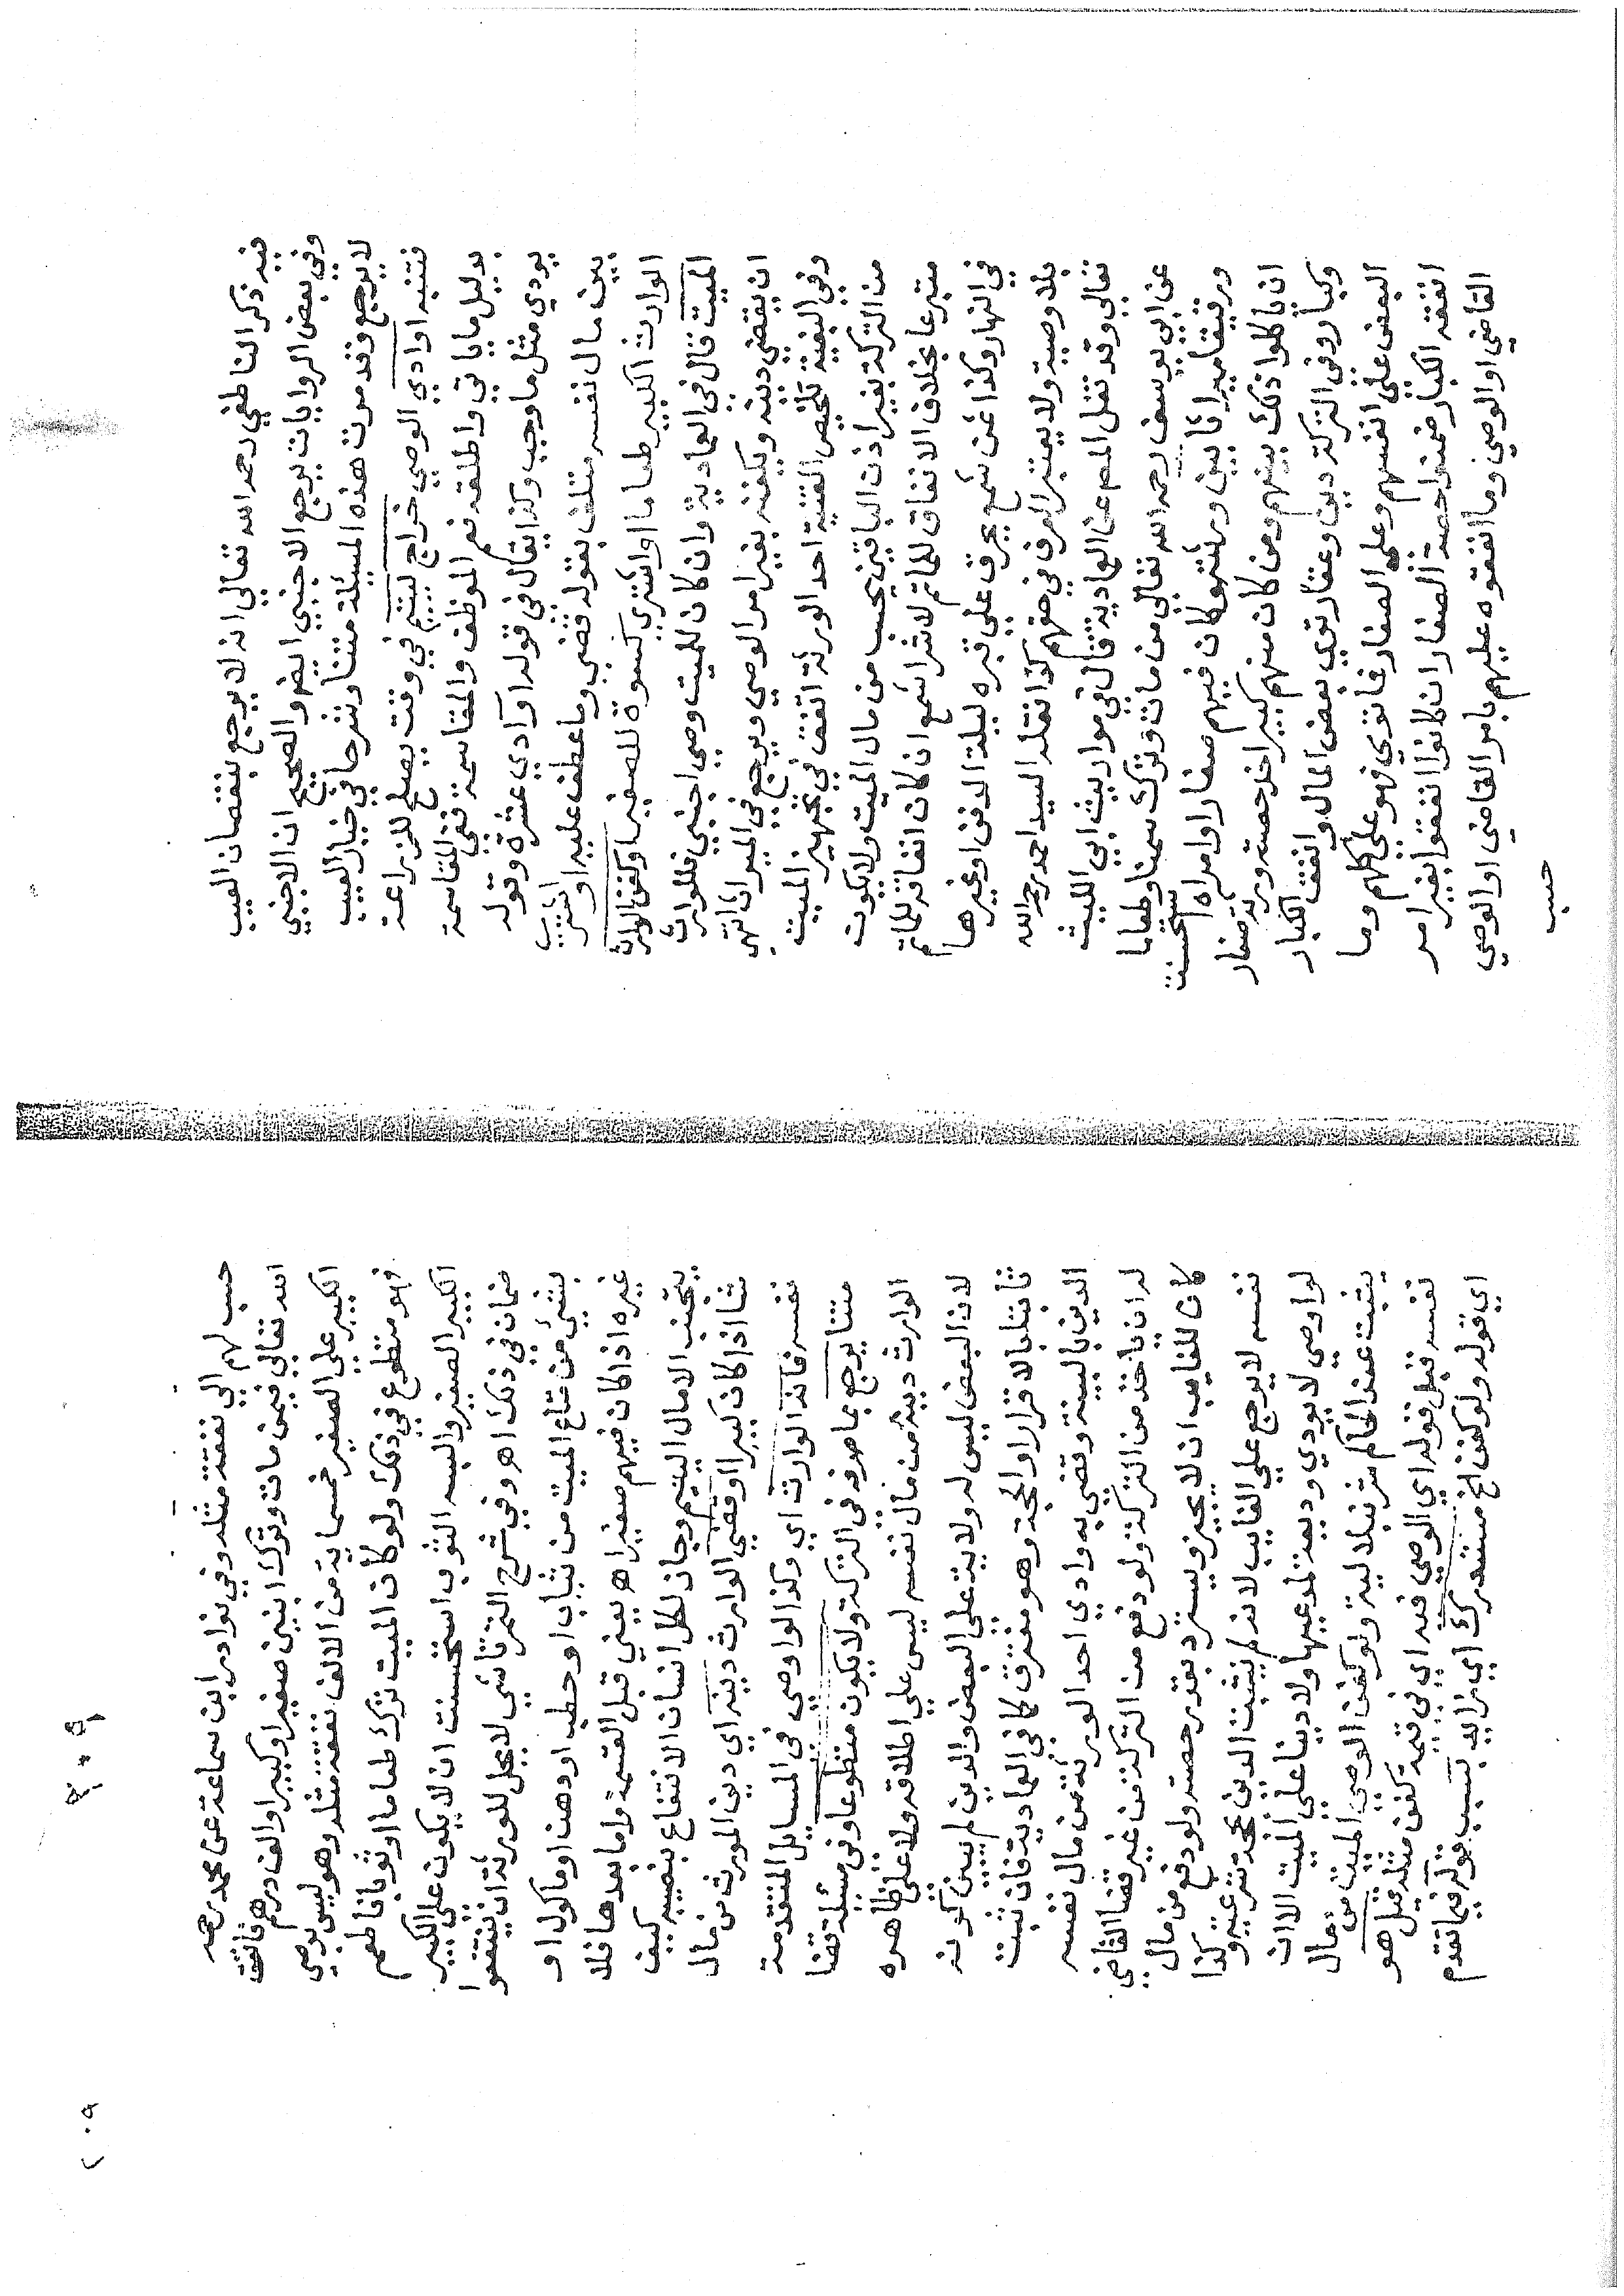 فيه ذكر الناطفي رحمه الله تعالي انه لا يرجع بنقصان العيب
وفي بعض الروايات يرجع الاجنبي ايضا والصحيح ان الاجنبي
لا يرجع وقد مرت هذه المسئلة متنا وشرحا في خيار العيب
فتنبه او ادي الوصي خراج ليتيم في وقت يصلح للزراعة
بدليل ما ياتي واطلقه فعم الموظف والمقاسمة ففي المقاسمة
يودي مثل ما وجب وكذا يقال في قوله او ادي عشره وقوله
بين مال نفسه متلف بقوله قضي وما عطف عليه او اشتري
الوارث الكبير طعاما او اشتري كسوة للصغير او كفن الوارث
الميت قال في العمادية وان كان للميت وصي اجنبي فللوارث
ان يقضي دينه ويكفنه بغير امر الوصي ويرجع في الميراث انتهي
وفي البغية تلخيص القنية احد الورثة انفق في تجهيز الميت
من التركة بغير اذن الباقين يحسب من مال الميت ولا يكون
متبرعا بخلاف الانفاق للماتم لاشراشمع ان كان انفاقه للماتم
في النهار وكذا ثمن شمع يحرق علي قبره ليلة الدفن او غيرها
بلا وصية ولا يعتبر العرف في حقهم كذا نقله السيد احمد رحمه الله
تعالي وقد نقل المص عن العمادية قال في مواريث ابي الليث
عن ابي يوسف رحمه الله تعالي من مات وترك سمنا وطعاما
ورقيقا ميراثا بين ورثته وكان فيهم صغارا وامراه استحسنت
ان ياكلوا ذلك بينهم ومن كان منهم كبيرا اخذ حصته وورثه صغار
وكبار وفي التركة دين وعقار توي بعض المال وانفق الكبار
البعض علي انفسهم وعلي الصغار فما توي فهو علي كلهم وما
انفقه الكبار ضمنوا حصة الصغار ان كانوا انفقوا بغير امر
القاضي او الوصي وما انفقوه عليهم بامر القاضي او الوصي
حسب
حسب لهم الي نفقة مثله وفي نوادر ابن سماعة عن محمد رحمه
الله تعالي فيمن مات وترك ابنين صغيرا وكبيرا والف درهم فانفق
الكبير علي الصغير خمسماية من الالف نفقة مثله وهو ليس بوصي
فهو متطوع في ذلك ولو كان الميت ترك طعاما او ثوبا فاطعم
الكبير الصغير والبسه الثوب استحسنت ان لا يكون علي الكبير
ضمان في ذلك اهـ وفي شرح التمرتاشي لا يحل للورثة ان ينتفعوا
بشئ من متاع الميت من ثياب او حطب او دهن او ماكول او
غيره اذا كان فيهم صغير اهـ يعني قبل القسمة واما بعدها فلا
يتجنب الا مال اليتيم وجاز لكل انسان الانتفاع بنصيبه كيف
شا اذا كان كبيرا او قضي الوارث دينه اي دين المورث من مال
نفسه فانه الوارث اي وكذا الوصي في المسايل المتقدمة
متنا يرجع بما صرفه في التركة ولا يكون متطوعا وفي مسئلة قضا
الوارث دينه من مال نفسه ليس علي اطلاقه ولا علي ظاهره
لان البعض ليس له ولاية علي البعض والدين لم يبين كونه
ثابتا بالاقرار او الحجة وهو مفترق كما في العمادية فان ثبت
الدين بالبينة وقضي به وادي احد الورثة من مال نفسه
له ان ياخذ من التركة ولو دفع من التركة من غير قضا القاضي
كان للغايب ان لا يجيز ويسترد بقدر حصته ولو دفع من مال
نفسه لا يرجع علي الغايب لانه لم يثبت الدين بحجة شرعية وكذا
لو اوصي لا يودي وديعة لمدعيها ولا دينا علي الميت الا ان
يثبت عند الحاكم شرعا بلا لبية ولو كفن الوصي الميت من مال
نفسه قبل قوله اي الوصي فيه اي في قيمة كفن مثله قيل هو
اي قوله ولو كفن الخ مستدرك اي زايد بسبب قوله فيما تقدم
٢٠٩
٢٠٩